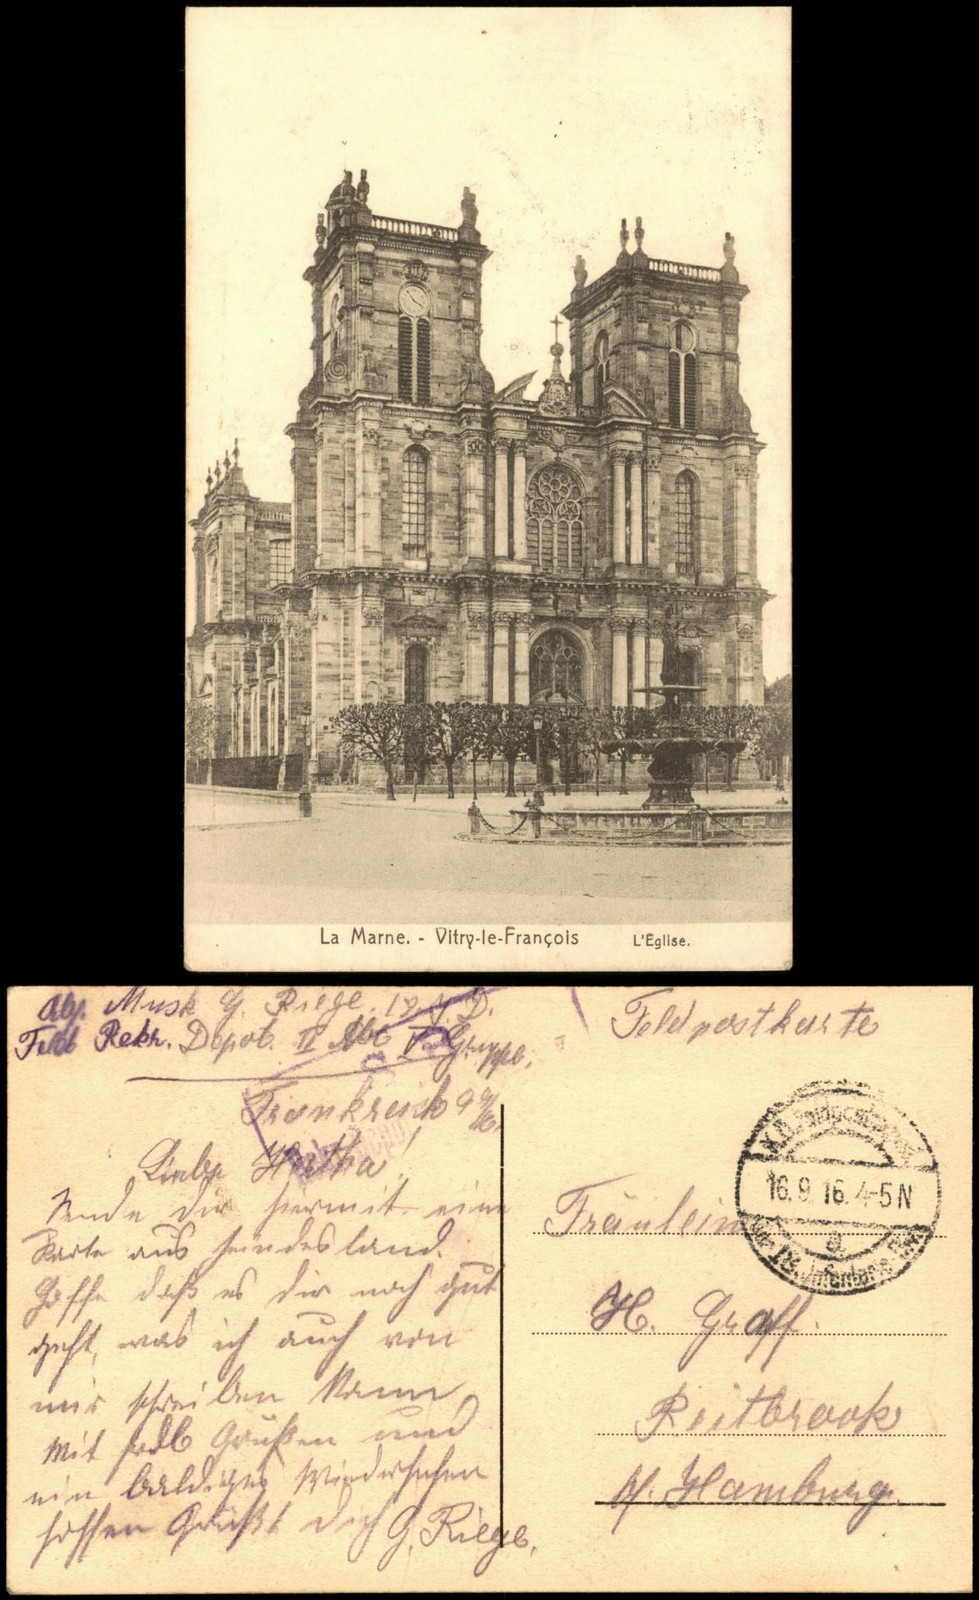 La Marne. - Vitry-le-François L'Eglise.
Abs. Musk G. Riege. 19 J. D.
Feld Rekr. Depot. II Abt V Gruppe.
Frankreich
Liebe Hertha!
Sende dir hiermit eine
Karte aus feindesland.
Hoffe daß es dir noch gut
geht, was ich auch von
mir schreiben kann
Mit Grüßen und
ein baldiges Wiedersehen
hoffen Grüßt dich G. Riege.
Feldpostkarte
16.9.16. 4-5N
Fräulein
H. Graff.
Reitbrook
b/. Hamburg.